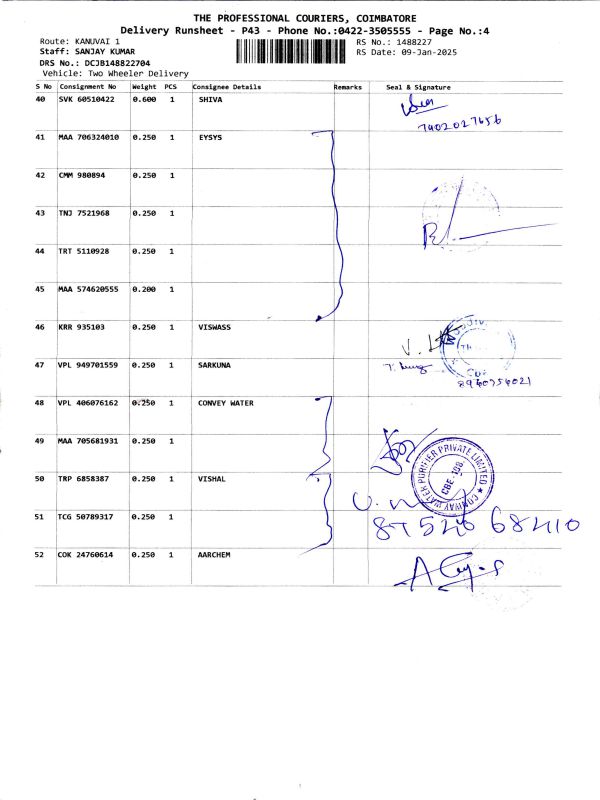 THE PROFESSIONAL COURIERS, COIMBATORE
Delivery Runsheet - P43 - Phone No.:0422-3505555 - Page No.:4
Route: KANUVAI 1 RS No.: 1488227
Staff: SANJAY KUMAR RS Date: 09-Jan-2025
DRS No.: DCJB148822704
Vehicle: Two Wheeler Delivery
S No Consignment No Weight PCS Consignee Details Remarks Seal & Signature
40 SVK 60510422 0.600 1 SHIVA
7402027656
41 MAA 706324010 0.250 1 EYSYS
42 CMM 980894 0.250 1
43 TNJ 7521968 0.250 1
44 TRT 5110928 0.250 1
45 MAA 574620555 0.200 1
46 KRR 935103 0.250 1 VISWASS
47 VPL 949701559 0.250 1 SARKUNA
8940754021
48 VPL 406076162 0.250 1 CONVEY WATER
49 MAA 705681931 0.250 1
CONWAY WATER PURIFIER PRIVATE LIMITED
CBE-108
50 TRP 6858387 0.250 1 VISHAL
51 TCG 50789317 0.250 1
87526 68210
52 COK 24760614 0.250 1 AARCHEM